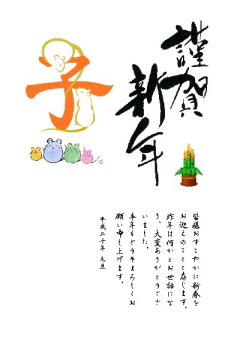 謹賀
新年
子
皆様おすこやかに新春を
お迎えのことと存じます。
昨年は何かとお世話にな
り、大変ありがとうござ
いました。
本年もどうぞよろしくお
願い申し上げます。
平成二十年 元旦